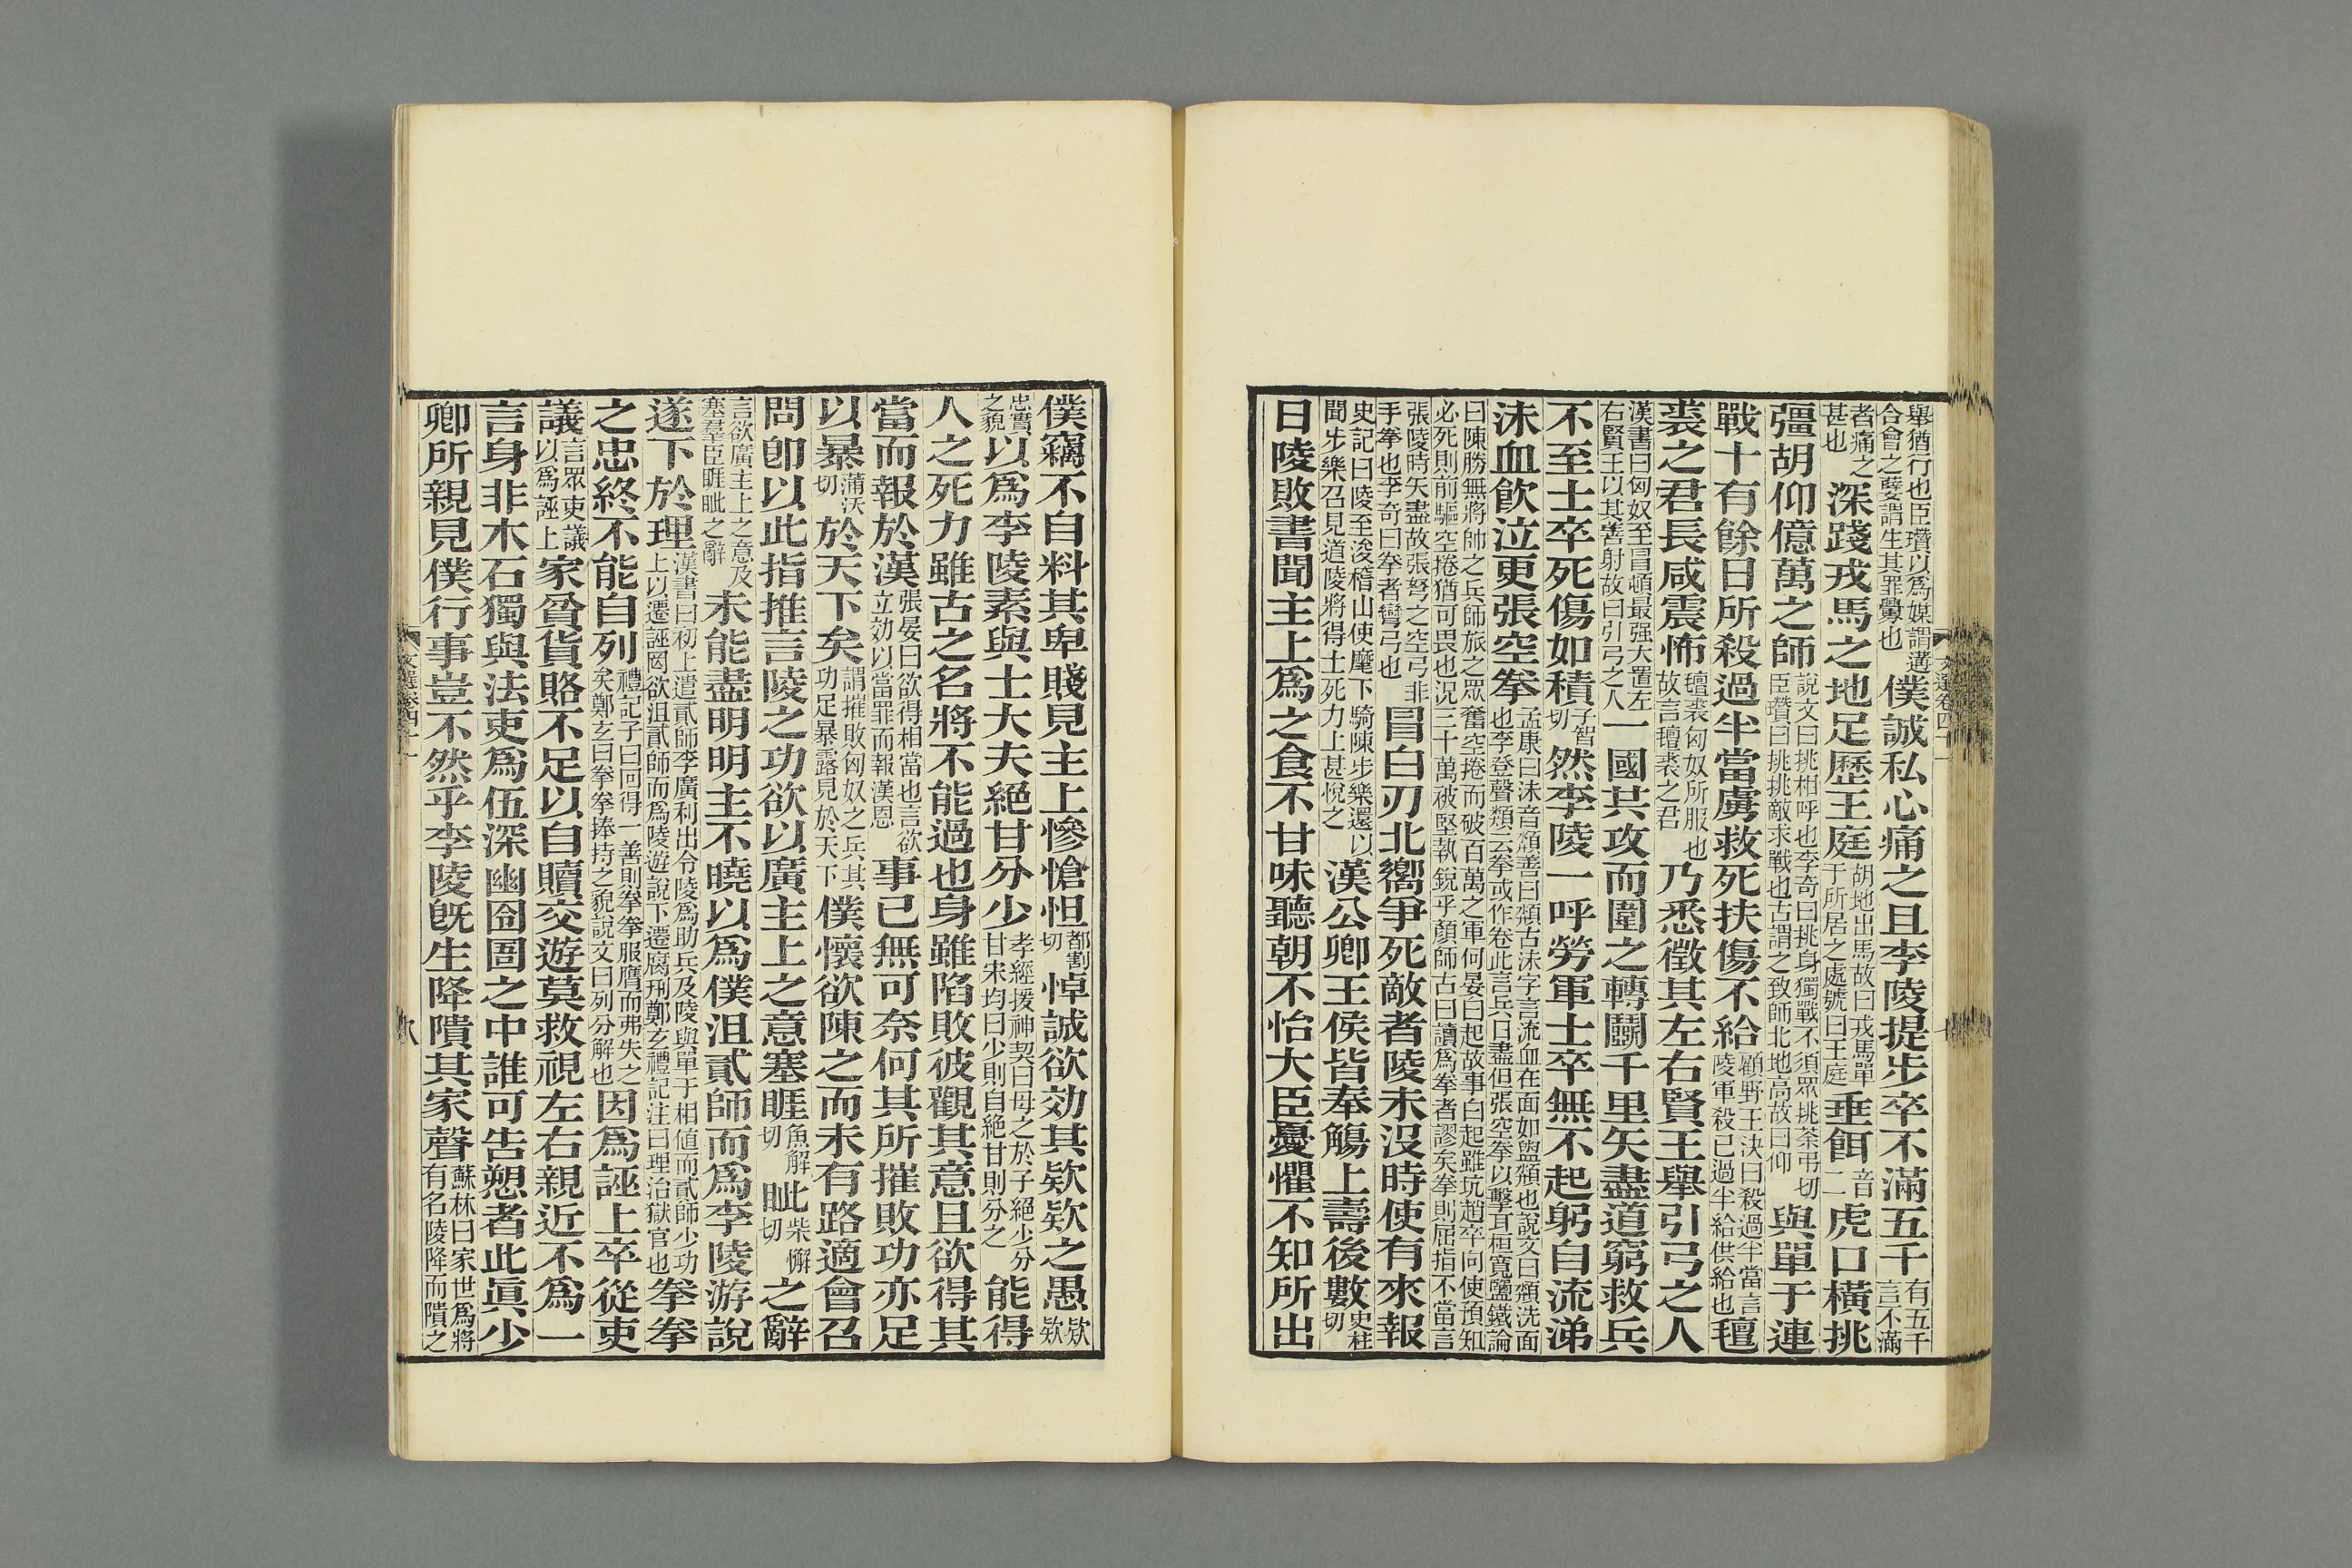 舉猶行也臣瓚以爲媒謂遘合會之孽謂生其罪舋也僕誠私心痛之且李陵提步卒不滿五千有五千言不滿
者痛之甚也深踐戎馬之地足歷王庭胡地出馬故曰戎馬單于所居之處號曰王庭垂餌音二虎口橫挑
彊胡仰億萬之師說文曰挑相呼也李奇曰挑身獨戰不須眾挑荼弔切臣瓚曰挑挑敵求戰也古謂之致師北地高故曰仰與單于連
戰十有餘日所殺過半當虜救死扶傷不給顧野王決曰殺過半當言陵軍殺已過半給供給也氊
裘之君長咸震怖氊裘匈奴所服也故言氊裘之君乃悉徵其左右賢王舉引弓之人
漢書曰匈奴至冒頓最强大置左右賢王以其善射故曰引弓之人一國共攻而圍之轉鬭千里矢盡道窮救兵
不至士卒死傷如積子智切然李陵一呼勞軍士卒無不起躬自流涕
沬血飲泣更張空拳孟康曰沬音頮善曰頮古沬字言流血在面如盥頮也說文曰頮洗面也李登聲類云拳或作卷此言兵已盡但張空拳以擊耳桓寬鹽鐵論
曰陳勝無將帥之兵師旅之眾奮空捲而破百萬之軍何晏曰起故事白起雖坑趙卒向使預知必死則前驅空捲猶可畏也況三十萬被堅執銳乎顏師古曰讀爲拳者謬矣拳則屈指不當言
張陵時矢盡故張弩之空弓非手拳也李奇曰拳者彎弓也冒白刃北嚮爭死敵者陵未沒時使有來報
史記曰陵至浚稽山使麾下騎陳步樂還以聞步樂召見道陵將得士死力上甚悅之漢公卿王侯皆奉觴上壽後數史柱切
日陵敗書聞主上爲之食不甘味聽朝不怡大臣憂懼不知所出
文選卷四十一
七
僕竊不自料其卑賤見主上慘愴怛都割切悼誠欲効其欵欵之愚欵
忠實之貌以爲李陵素與士大夫絕甘分少孝經援神契曰母之於子絕少分甘宋均曰少則自絕甘則分之能得
人之死力雖古之名將不能過也身雖陷敗彼觀其意且欲得其
當而報於漢張晏曰欲得相當也言欲立効以當罪而報漢恩事已無可奈何其所摧敗功亦足
以暴蒲沃切於天下矣謂摧敗匈奴之兵其功足暴露見於天下僕懷欲陳之而未有路適會召
問卽以此指推言陵之功欲以廣主上之意塞睚魚解切眦此柴懈切之辭
言欲廣主上之意及塞羣臣睚眦之辭未能盡明明主不曉以爲僕沮貳師而爲李陵游說
遂下於理漢書曰初上遣貳師李廣利出令陵爲助兵及陵與單于相値而貳師少功上以遷誣罔欲沮貳師而爲陵遊說下遷腐刑鄭玄禮記注曰理治獄官也拳拳
之忠終不能自列禮記子曰回得一善則拳拳服膺而弗失之矣鄭玄曰拳拳捧持之貌說文曰列分解也因爲誣上卒從吏
議言眾吏議以爲誣上家貧貨賂不足以自贖交遊莫救視左右親近不爲一
言身非木石獨與法吏爲伍深幽囹圄之中誰可告愬者此眞少
卿所親見僕行事豈不然乎李陵旣生降隤其家聲蘇林曰家世爲將有名陵降而隤之
文選卷四十一
八